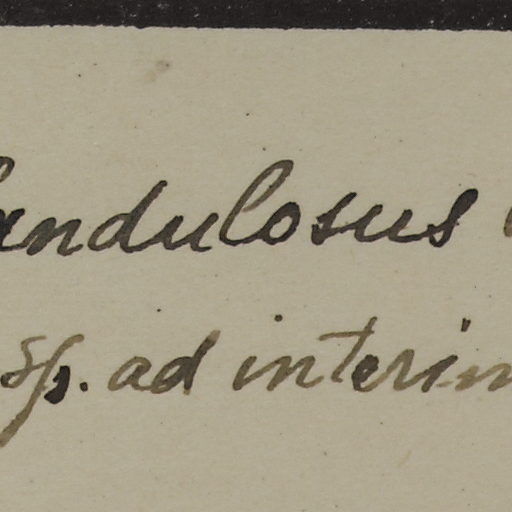 landulosus
sp. ad interim